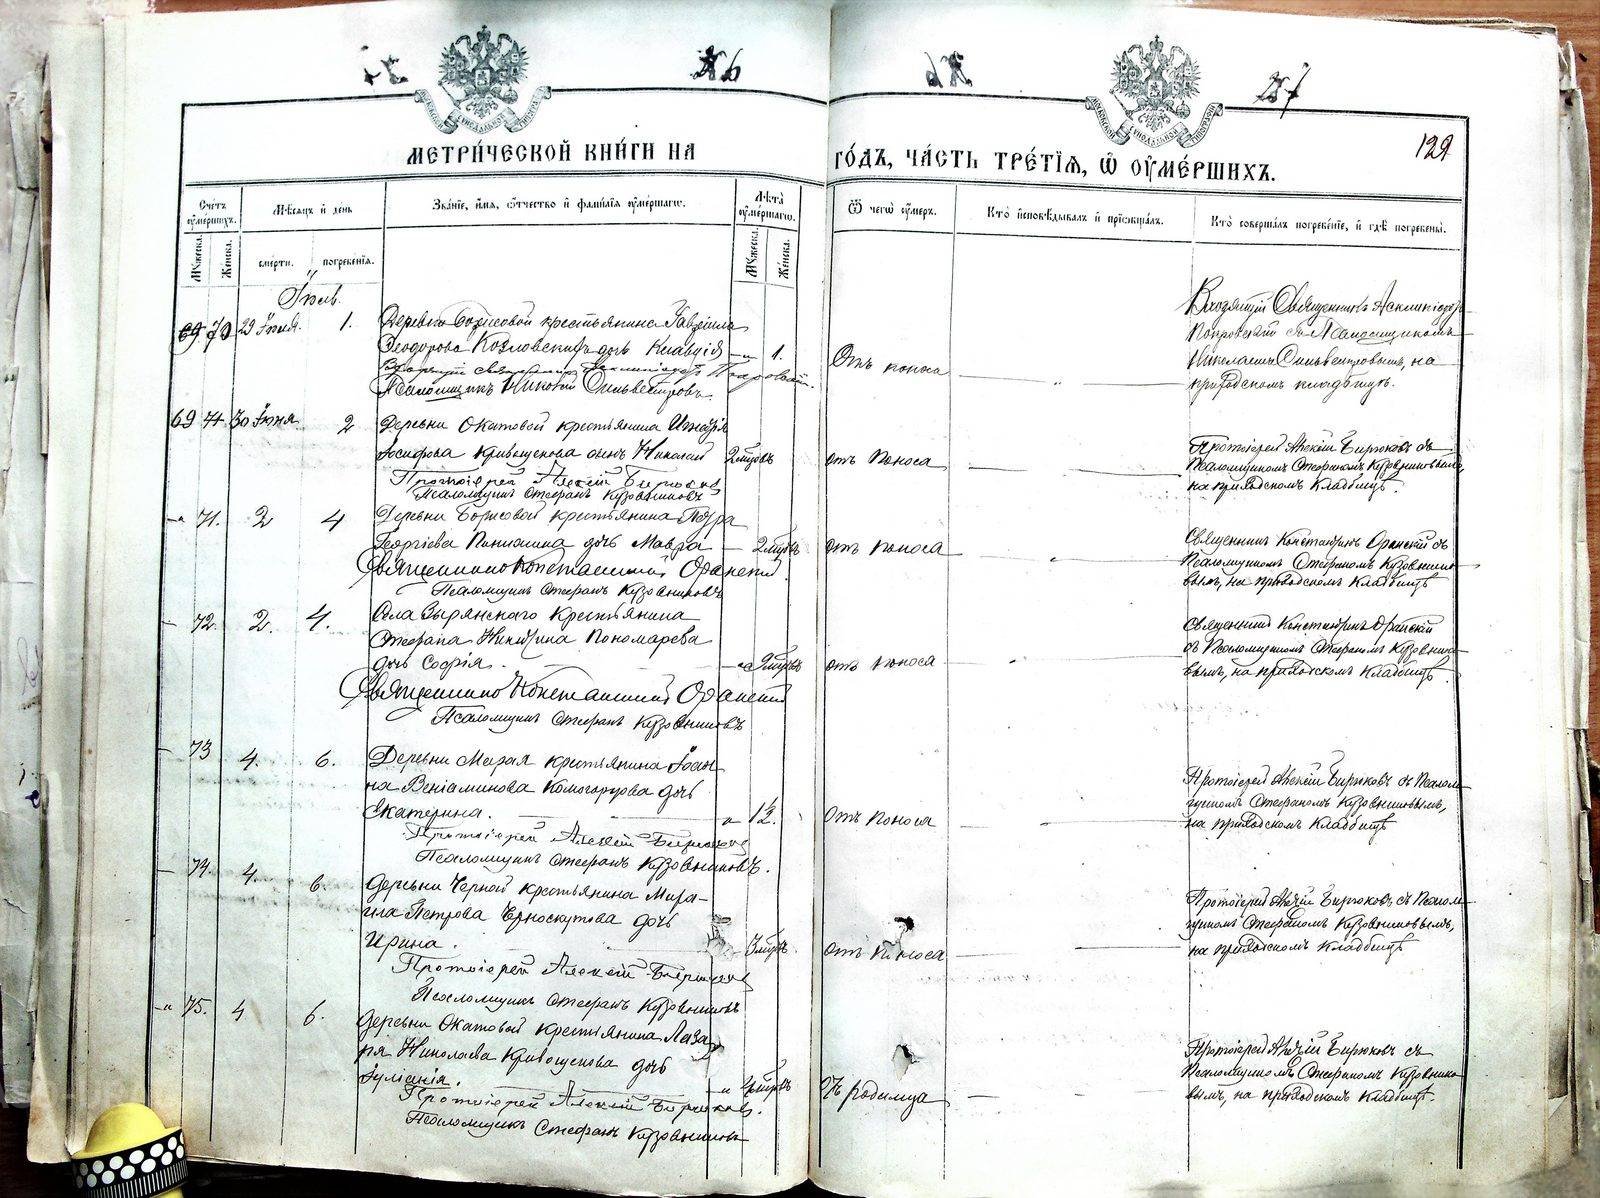 МОСКОВСКОЙ СѴНОДАЛЬНОЙ ТИПОГРАФІИ
МОСКОВСКОЙ СѴНОДАЛЬНОЙ ТИПОГРАФІИ
287
129
МЕТРИ́ЧЕСКОЙ КНИ́ГИ НА
ГО́ДЪ, ЧА́СТЬ ТРЕ́ТЇѦ, Ѡ҆ ОУ҆МЕ́РШИХЪ.
Сче́тъ оу҆ме́ршихъ.
Мꙋ́жеска.
Же́нска.
Мѣ́сѧцъ и҆ де́нь
сме́рти.
погребе́нїѧ.
Зва́нїе, и҆́мѧ, ѻ҆́тчество и҆ фами́лїѧ оу҆ме́ршагѡ.
Лѣ́та оу҆ме́ршагѡ.
Мꙋ́жеска.
Же́нска.
Ѿ чегѡ̀ оу҆́меръ.
Кто̀ и҆сповѣ́дывалъ и҆ прїѡбща́лъ.
Кто̀ соверша́лъ погребе́нїе, и҆ гдѣ̀ погребены̀.
Іюль.
70 29 Іюня. 1.
Деревни Борисовой крестьянина Гавріила
Ѳеодорова Козловскихъ дочь Клавдія — „ 1.
Псаломщикъ Николай Сильвестровъ.
Отъ поноса
Священникъ
Покровскій съ Псаломщикомъ
Николаемъ Сильвестровымъ, на
приходскомъ кладбищѣ.
69 30 Іюня 2
Деревни Окатовой крестьянина
Іосифова Кривощекова сынъ Николай
Протоіерей Алексій Бирюковъ
Псаломщикъ Стефанъ Кузовниковъ
отъ поноса
Протоіерей Алексій Бирюковъ съ
Псаломщикомъ Стефаномъ Кузовниковымъ,
на приходскомъ Кладбищѣ.
71. 2 4
Деревни Борисовой крестьянина Петра
Георгіева дочь Мавра
Священникъ Константинъ
Псаломщикъ Стефанъ Кузовниковъ
отъ поноса
Священникъ Константинъ съ
Псаломщикомъ Стефаномъ Кузовнико-
вымъ, на приходскомъ Кладбищѣ
72. 2. 4.
Села Зырянскаго Крестьянина
Стефана Никитина Пономарева
дочь Софія.
Священникъ Константинъ
Псаломщикъ Стефанъ Кузовниковъ
отъ поноса
Священникъ Константинъ
съ Псаломщикомъ Стефаномъ Кузовнико-
вымъ, на приходскомъ Кладбищѣ.
73 4. 6.
Деревни крестьянина Іоан-
на Веніаминова Комогорцова дочь
Екатерина.
Протоіерей Алексій Бирюковъ
Псаломщикъ Стефанъ Кузовниковъ.
отъ поноса
Протоіерей Алексій Бирюковъ съ Псалом-
щикомъ Стефаномъ Кузовниковымъ,
на приходскомъ Кладбищѣ
74. 4. 6.
Деревни Черной крестьянина
Петрова Черноскутова дочь
Ирина.
Протоіерей Алексій Бирюковъ
Псаломщикъ Стефанъ Кузовниковъ
отъ поноса
Протоіерей Алексій Бирюковъ, съ Псалом-
щикомъ Стефаномъ Кузовниковымъ,
на приходскомъ Кладбищѣ
75. 4 6.
Деревни Окатовой крестьянина Лаза-
ря Николаева Кривощекова дочь
Іуліанія.
Протоіерей Алексій Бирюковъ.
Псаломщикъ Стефанъ Кузовниковъ
отъ родимца
Протоіерей Алексій Бирюковъ съ
Псаломщикомъ Стефаномъ Кузовнико-
вымъ, на приходскомъ Кладбищѣ.